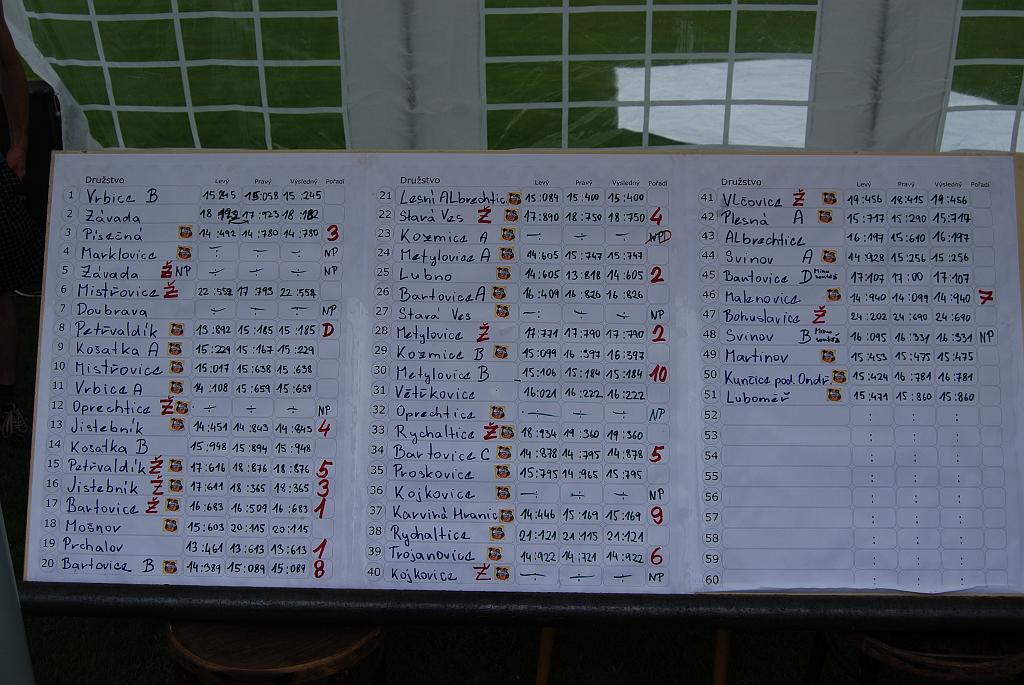 Družstvo Levý Pravý Výsledný Pořadí
1 Vrbice B 15:245 15:058 15:245
2 Závada 18 192 17:123 18:182
3 Písečná 14:492 14:780 14:780 3
4 Marklovice ÷ ÷ ÷ NP
5 Závada Ž NP ÷ ÷ ÷ NP
6 Mistřovice Ž 22:552 17:793 22:552
7 Doubrava ÷ ÷ ÷ NP
8 Petřvaldík 13:892 15:185 15:185 D
9 Košatka A 15:229 15:167 15:229
10 Mistřovice 15:017 15:638 15:638
11 Vrbice A 14:108 15:659 15:659
12 Oprechtice Ž ÷ ÷ ÷ NP
13 Jistebník 14:451 14:843 14:843 4
14 Košatka B 15:948 15:894 15:948
15 Petřvaldík Ž 17:616 18:876 18:876 5
16 Jistebník Ž 17:611 18:365 18:365 3
17 Bartovice Ž 16:683 16:509 16:683 1
18 Mošnov 15:603 20:115 20:115
19 Prchalov 13:461 13:613 13:613 1
20 Bartovice B 14:389 15:089 15:089 8
Družstvo Levý Pravý Výsledný Pořadí
21 Lesní Albrechtice 15:084 15:400 15:400
22 Stará Ves Ž 17:890 18:750 18:750 4
23 Kozmice A ÷ ÷ ÷ NP D
24 Metylovice A 14:605 15:747 15:747
25 Lubno 14:605 13:818 14:605 2
26 Bartovice A 16:409 16:826 16:826
27 Stará Ves ÷ ÷ ÷ NP
28 Metylovice Ž 17:771 17:790 17:790 2
29 Kozmice B 15:099 16:397 16:397
30 Metylovice B 15:106 15:184 15:184 10
31 Větřkovice 16:021 16:222 16:222
32 Oprechtice ÷ ÷ ÷ NP
33 Rychaltice Ž 18:934 19:360 19:360
34 Bartovice C 14:878 14:795 14:878 5
35 Proskovice 15:795 14:965 15:795
36 Kojkovice ÷ ÷ ÷ NP
37 Karviná Hranic 14:446 15:169 15:169 9
38 Rychaltice 21:121 21:115 21:121
39 Trojanovice 14:922 14:721 14:922 6
40 Kojkovice Ž ÷ ÷ ÷ NP
Družstvo Levý Pravý Výsledný Pořadí
41 Vlčovice Ž 19:456 18:415 19:456
42 Plesná A 15:717 15:290 15:717
43 Albrechtice 16:197 15:610 16:197
44 Svinov A 14:928 15:256 15:256
45 Bartovice D Mimo soutěž 17:107 17:00 17:107
46 Malenovice 14:940 14:099 14:940 7
47 Bohuslavice Ž 24:202 24:690 24:690
48 Svinov B Mimo soutěž 16:095 16:331 16:331 NP
49 Martinov 15:453 15:475 15:475
50 Kunčice pod. Ondř. 15:424 16:781 16:781
51 Luboměř 15:471 15:860 15:860
52 : : :
53 : : :
54 : : :
55 : : :
56 : : :
57 : : :
58 : : :
59 : : :
60 : : :